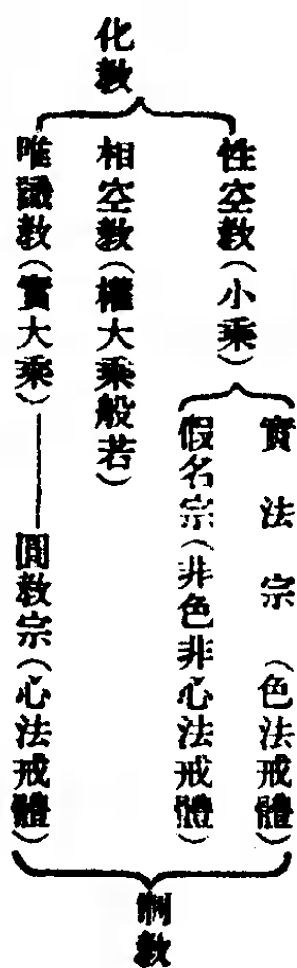 化教
性空教(小乘)
實法宗(色法戒體)
假名宗(非色非心法戒體)
相空教(權大乘般若)
唯識教(實大乘)——圓教宗(心法戒體)
制教